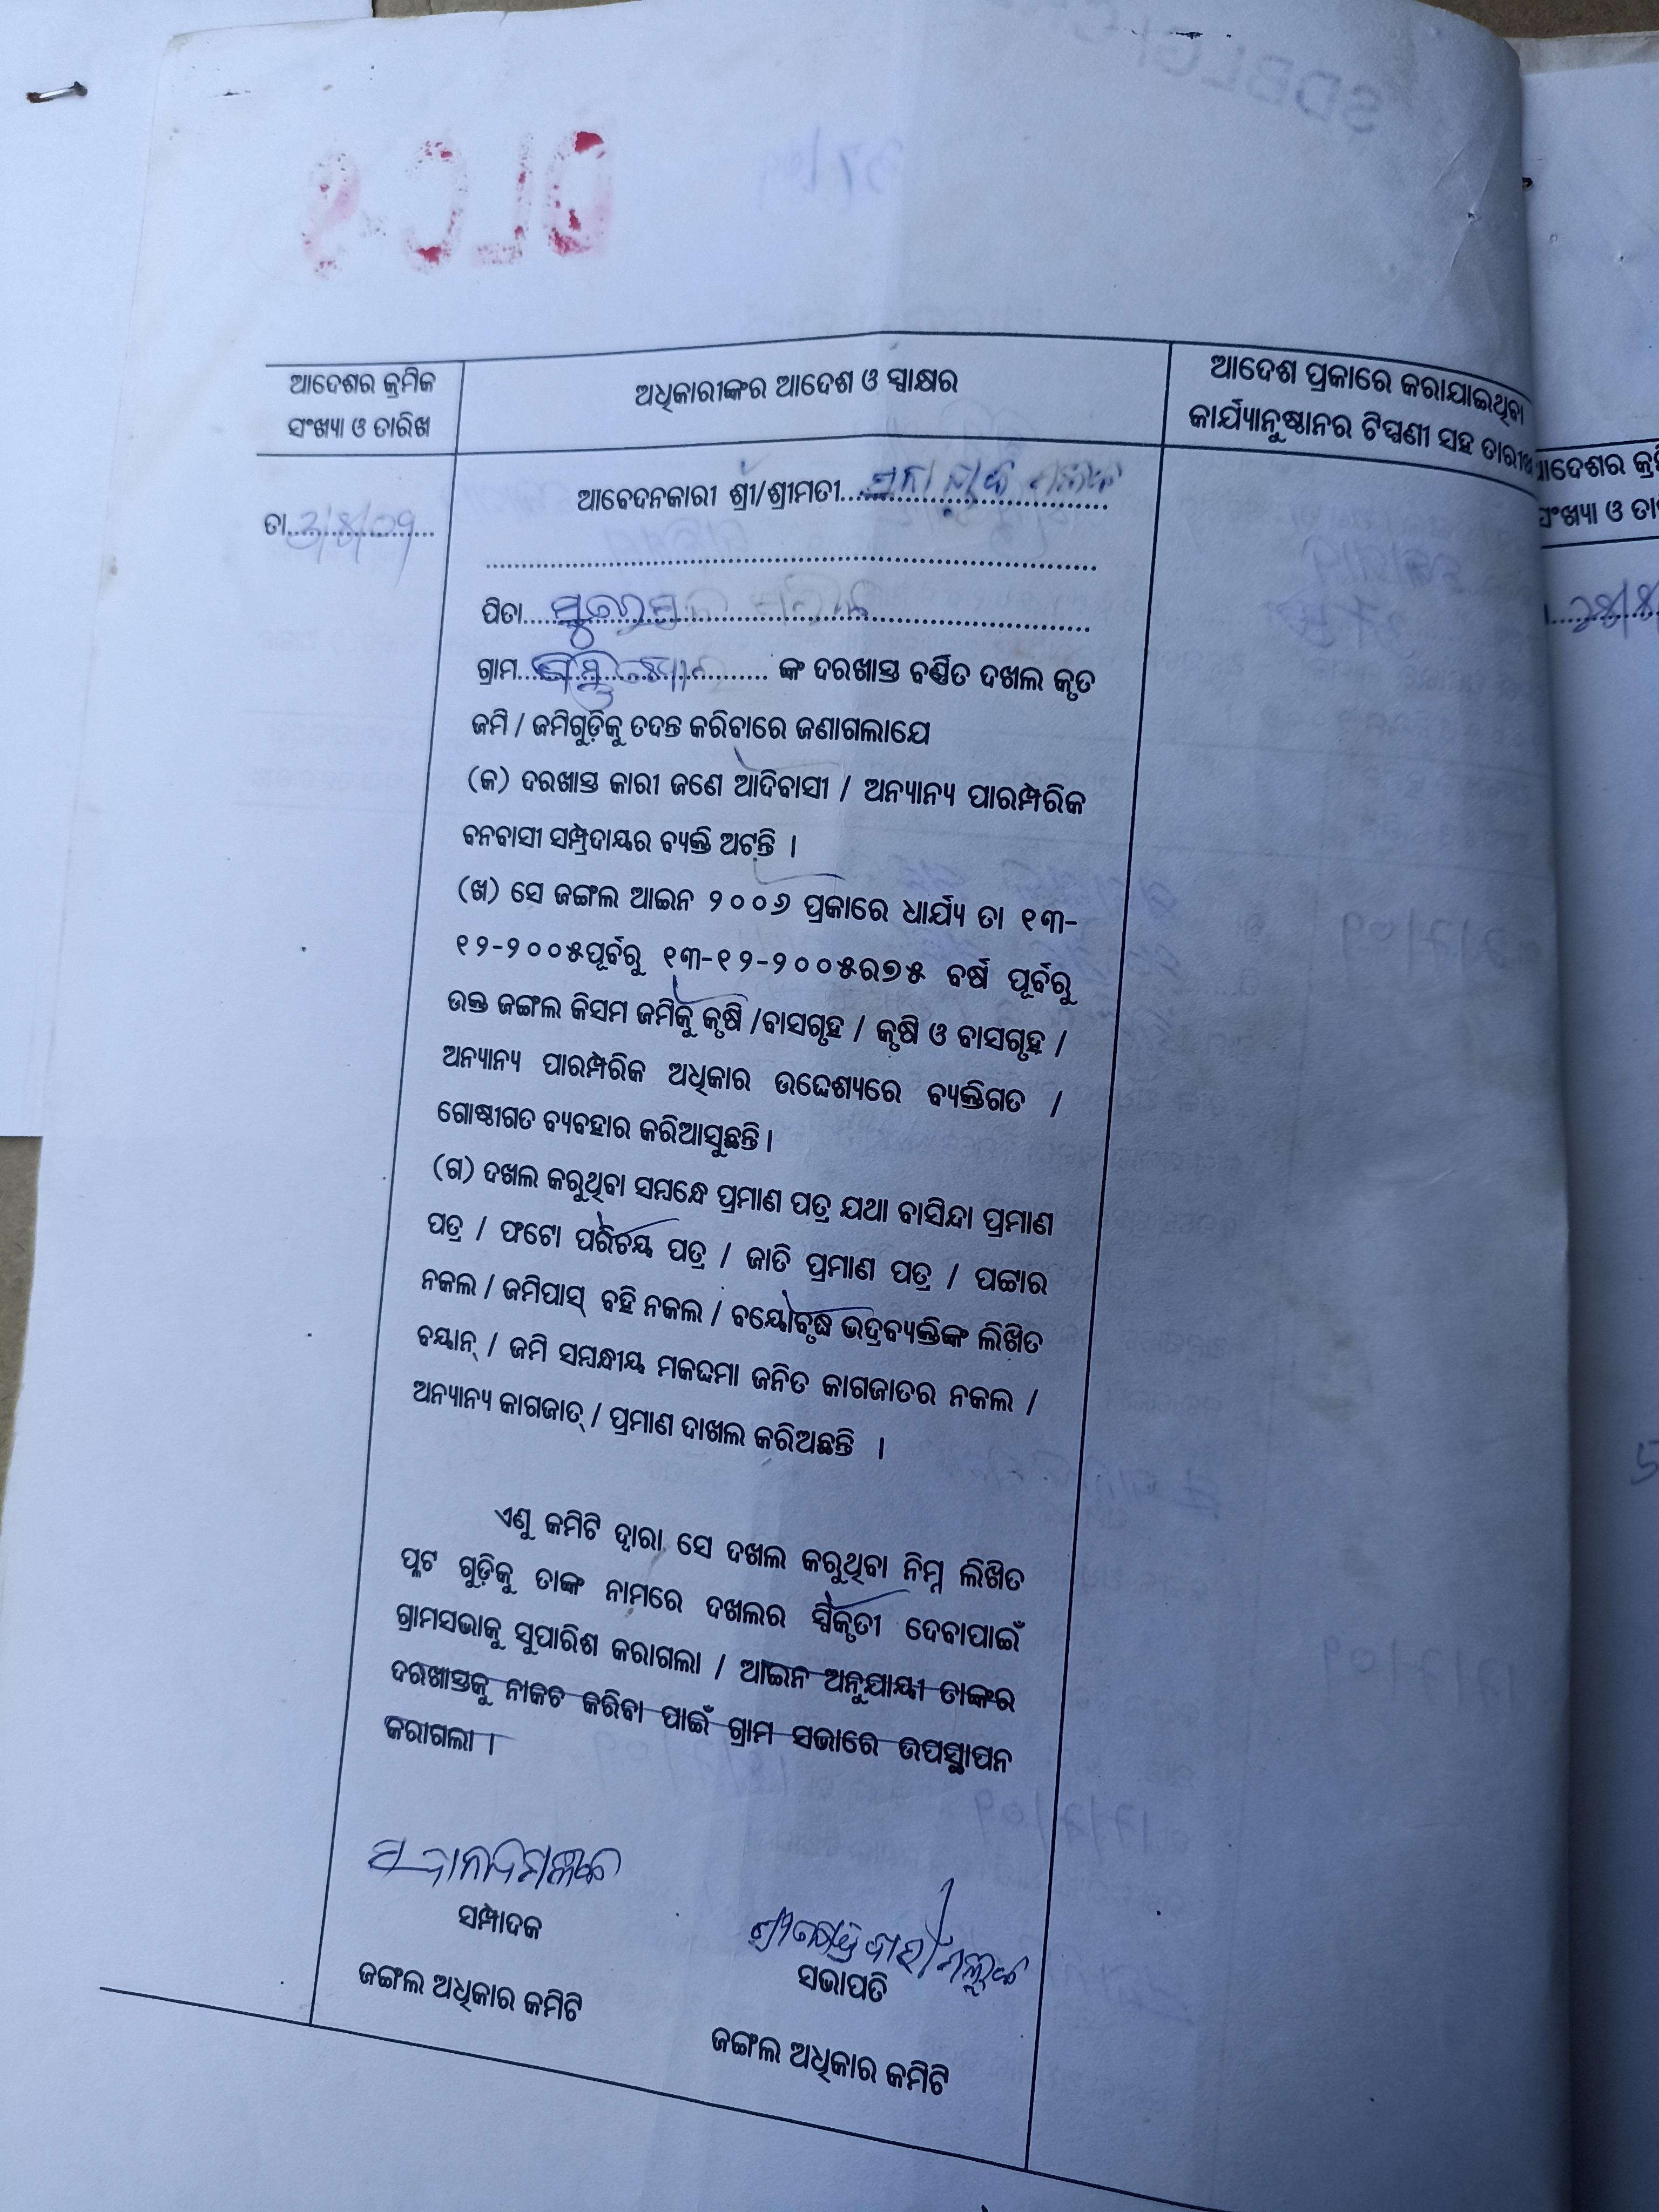 ଆଦେଶର କ୍ରମିକ
ସଂଖ୍ୟା ଓ ତାରିଖ
ଅଧିକାରୀଙ୍କର ଆଦେଶ ଓ ସ୍ୱାକ୍ଷର
ଆଦେଶ ପ୍ରକାରେ କରାଯାଇଥିବା
କାର୍ଯ୍ୟାନୁଷ୍ଠାନର ଟିପ୍ପଣୀ ସହ ତାରୀଖ
ତା....................
ଆବେଦନକାରୀ ଶ୍ରୀ/ଶ୍ରୀମତୀ....................
ପିତା....................
ଗ୍ରାମ.................... ଙ୍କ ଦରଖାସ୍ତ ବର୍ଣ୍ଣିତ ଦଖଲ କୃତ
ଜମି / ଜମିଗୁଡ଼ିକୁ ତଦନ୍ତ କରିବାରେ ଜଣାଗଲାଯେ
(କ) ଦରଖାସ୍ତ କାରୀ ଜଣେ ଆଦିବାସୀ / ଅନ୍ୟାନ୍ୟ ପାରମ୍ପରିକ
ବନବାସୀ ସମ୍ପ୍ରଦାୟର ବ୍ୟକ୍ତି ଅଟନ୍ତି ।
(ଖ) ସେ ଜଙ୍ଗଲ ଆଇନ ୨୦୦୬ ପ୍ରକାରେ ଧାର୍ଯ୍ୟ ତା ୧୩-
୧୨-୨୦୦୫ପୂର୍ବରୁ ୧୩-୧୨-୨୦୦୫ର୭୫ ବର୍ଷ ପୂର୍ବରୁ
ଉକ୍ତ ଜଙ୍ଗଲ କିସମ ଜମିକୁ କୃଷି /ବାସଗୃହ / କୃଷି ଓ ବାସଗୃହ /
ଅନ୍ୟାନ୍ୟ ପାରମ୍ପରିକ ଅଧିକାର ଉଦ୍ଦେଶ୍ୟରେ ବ୍ୟକ୍ତିଗତ /
ଗୋଷ୍ଠୀଗତ ବ୍ୟବହାର କରିଆସୁଛନ୍ତି ।
(ଗ) ଦଖଲ କରୁଥିବା ସମ୍ବନ୍ଧେ ପ୍ରମାଣ ପତ୍ର ଯଥା ବାସିନ୍ଦା ପ୍ରମାଣ
ପତ୍ର / ଫଟୋ ପରିଚୟ ପତ୍ର / ଜାତି ପ୍ରମାଣ ପତ୍ର / ପଟ୍ଟାର
ନକଲ / ଜମିପାସ୍ ବହି ନକଲ / ବୟୋବୃଦ୍ଧ ଭଦ୍ରବ୍ୟକ୍ତିଙ୍କ ଲିଖିତ
ବୟାନ୍ / ଜମି ସମ୍ବନ୍ଧୀୟ ମକଦ୍ଦମା ଜନିତ କାଗଜାତର ନକଲ /
ଅନ୍ୟାନ୍ୟ କାଗଜାତ୍ / ପ୍ରମାଣ ଦାଖଲ କରିଅଛନ୍ତି ।
ଏଣୁ କମିଟି ଦ୍ୱାରା ସେ ଦଖଲ କରୁଥିବା ନିମ୍ନ ଲିଖିତ
ପ୍ଲଟ ଗୁଡ଼ିକୁ ତାଙ୍କ ନାମରେ ଦଖଲର ସ୍ୱିକୃତୀ ଦେବାପାଇଁ
ଗ୍ରାମସଭାକୁ ସୁପାରିଶ କରାଗଲା / ଆଇନ ଅନୁଯାୟୀ ତାଙ୍କର
ଦରଖାସ୍ତକୁ ନାକଚ କରିବା ପାଇଁ ଗ୍ରାମ ସଭାରେ ଉପସ୍ଥାପନ
କରାଗଲା ।
ସମ୍ପାଦକ
ଜଙ୍ଗଲ ଅଧିକାର କମିଟି
ସଭାପତି
ଜଙ୍ଗଲ ଅଧିକାର କମିଟି